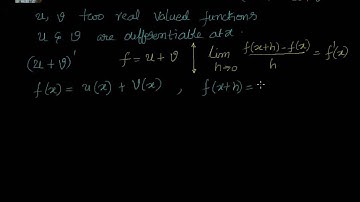 u, v two real valued functions
u & v are differentiable at x.
(u + v)' f = u + v lim h→0 f(x+h)-f(x) / h = f'(x)
f(x) = u(x) + v(x) , f(x+h) =